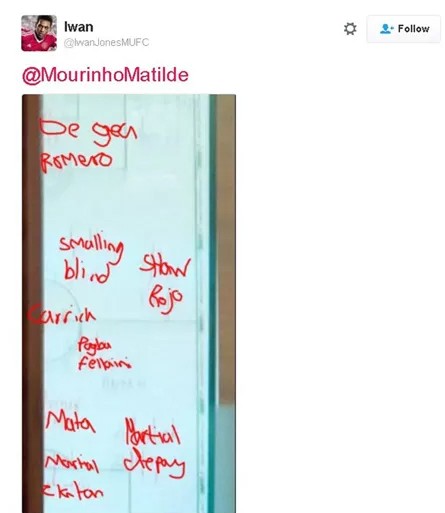 Iwan
@IwanJonesMUFC
Follow
@MourinhoMatilde
De gea
Romero
smalling
blind
Shaw
Rojo
Carrick
Pogba
fellaini
Mata
Martial
Martial
depay
zlatan